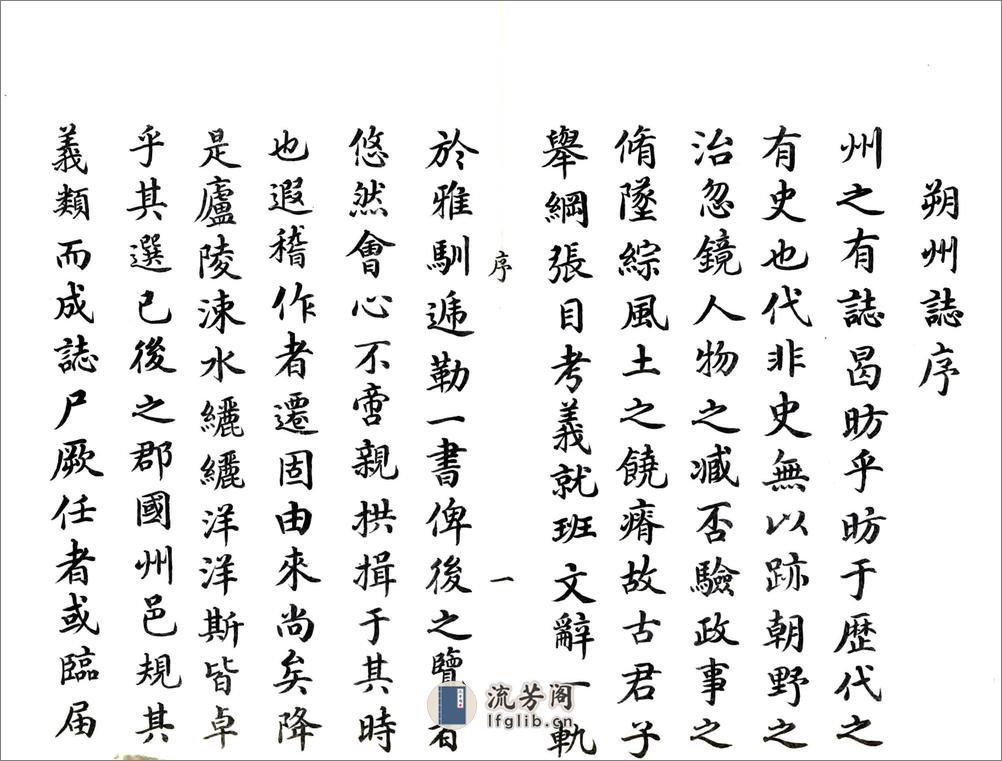 朔州誌序
州之有誌曷昉乎昉于歷代之
有史也代非史無以跡朝野之
治忽鏡人物之臧否驗政事之
脩墜綜風土之饒瘠故古君子
舉綱張目考義就班文辭一軌
序
一
於雅馴遞勒一書俾後之覽者
悠然會心不啻親拱揖于其時
也遐稽作者遷固由來尚矣降
是廬陵涑水纚纚洋洋斯皆卓
乎其選已後之郡國州邑規其
義類而成誌尸厥任者或臨屆
流芳阁
lfglib.cn